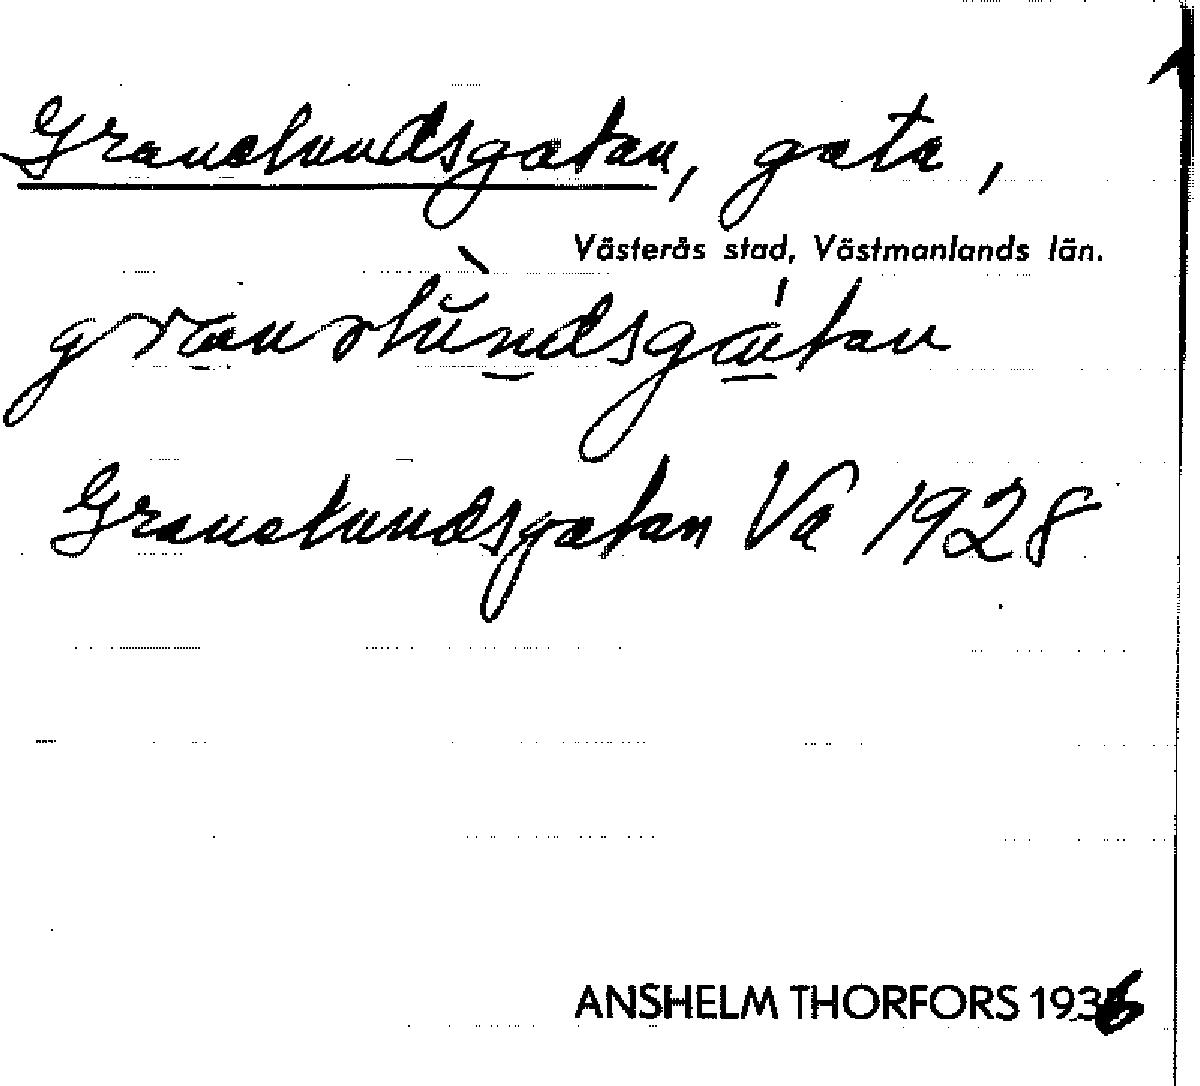 Granelundsgatan, gata,
Västerås stad, Västmanlands län.
Granelundsgatan Va 1928
ANSHELM THORFORS 1936